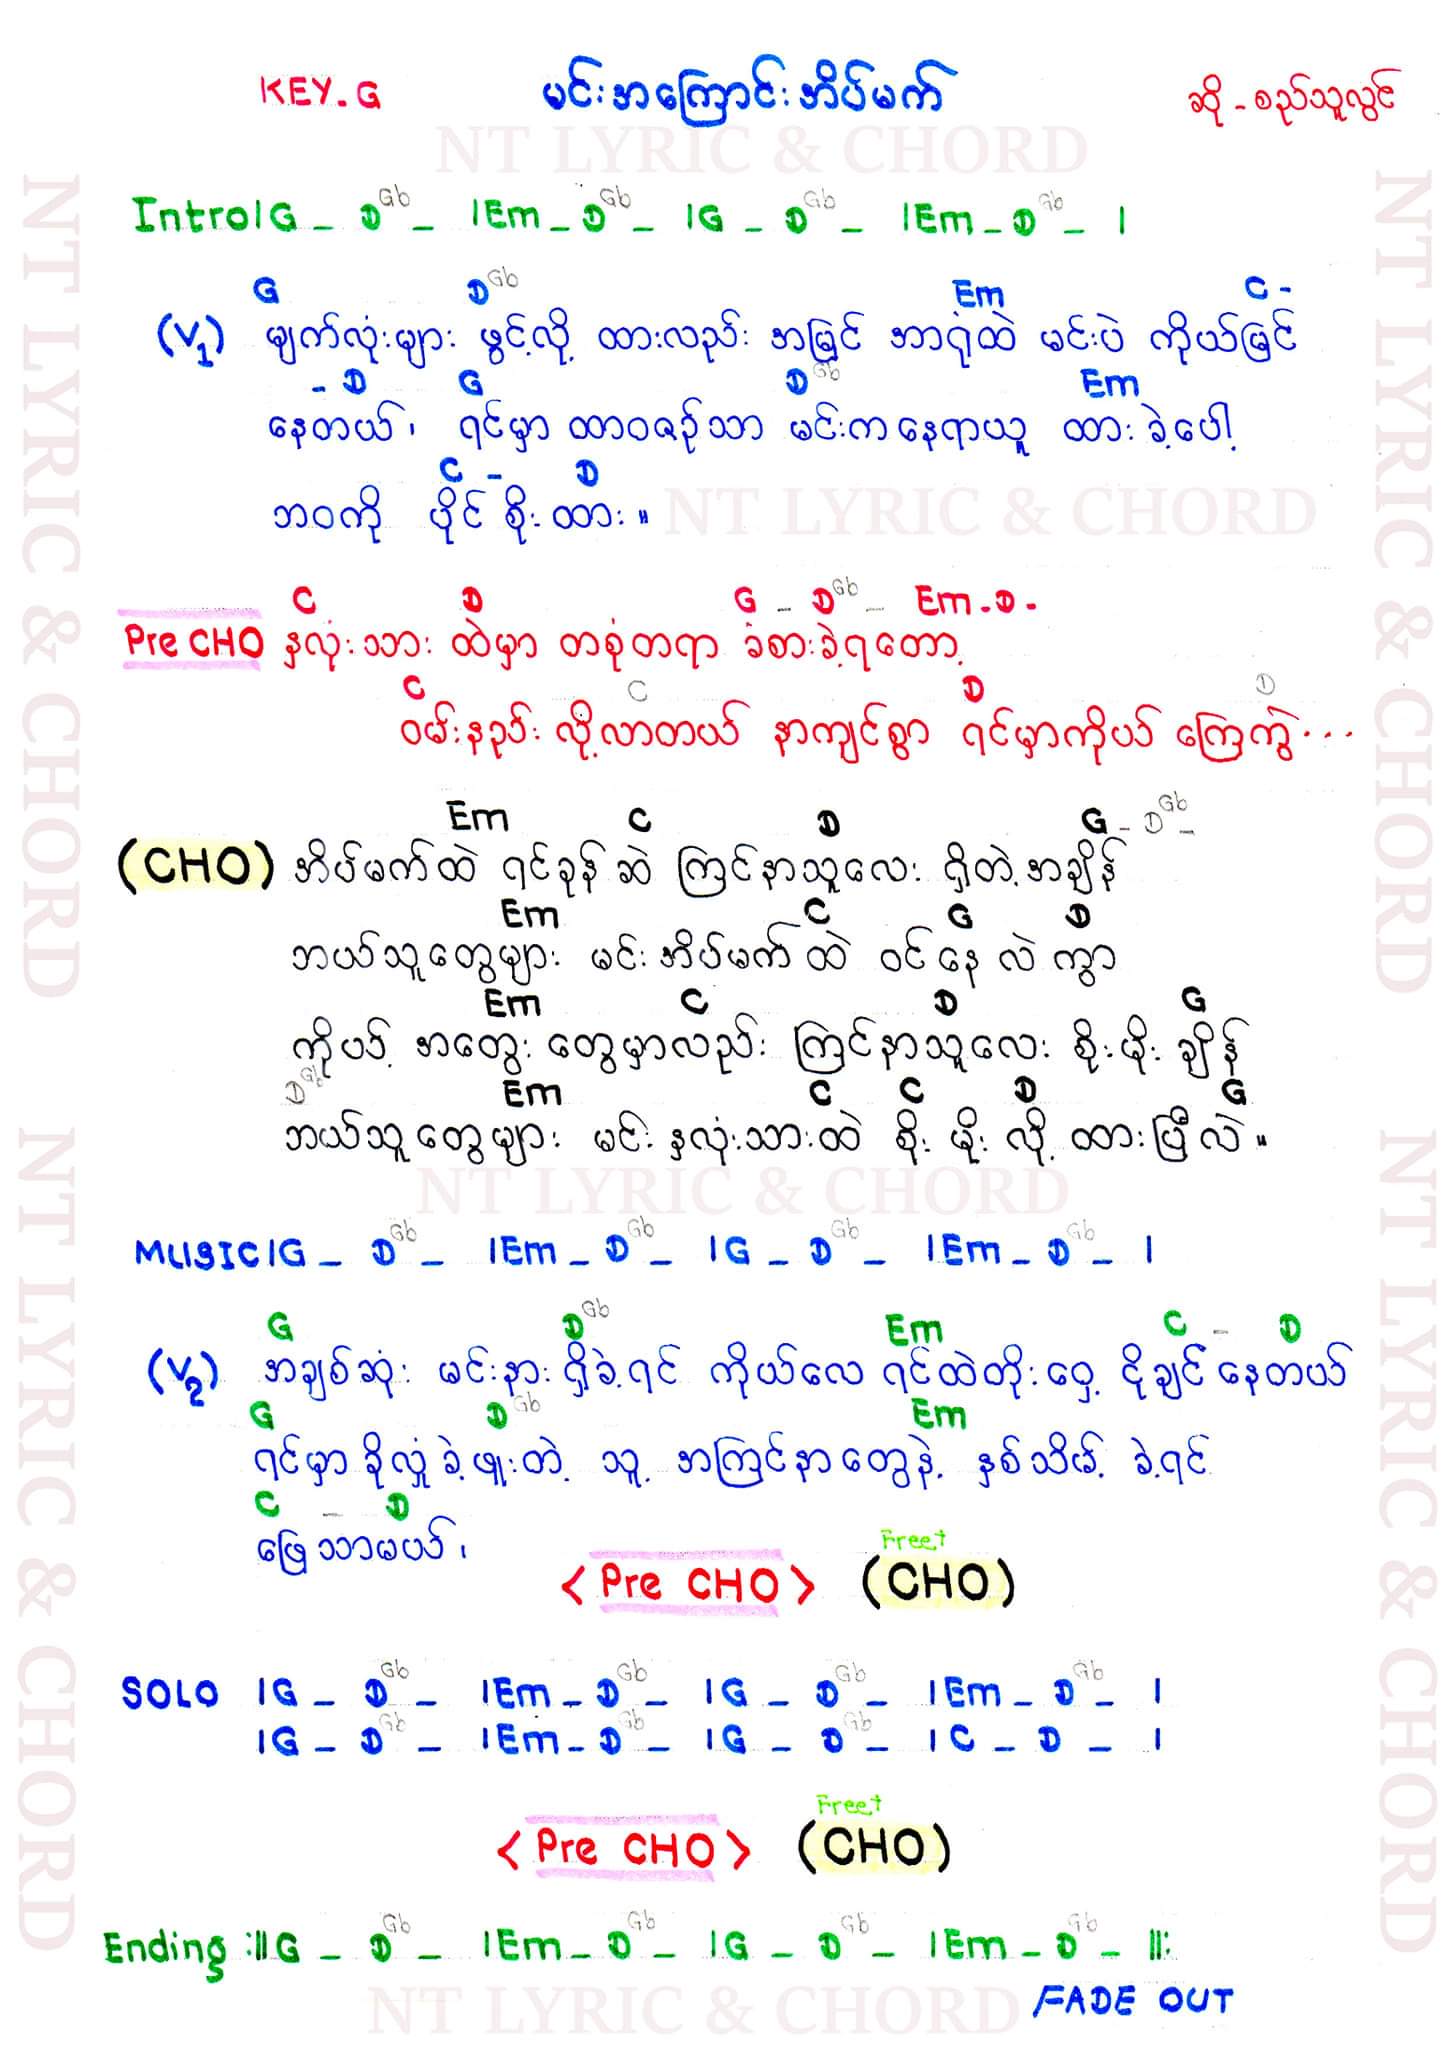 KEY.G မင်းအကြောင်းအိပ်မက် ဆို - စည်သူလွင်
NT LYRIC & CHORD
Intro|G _ D Gb _ |Em _ D Gb _ |G _ D Gb _ |Em _ D Gb _ |
G D Gb Em C -
(V1) မျက်လုံးများ ဖွင့်လို့ ထားလည်း အမြင် အာရုံထဲ မင်းပဲ ကိုယ်မြင်
- D G D Gb Em
နေတယ်၊ ရင်မှာ ထာဝစဉ်သာ မင်းက နေရာယူ ထားခဲ့ပေါ့
C - D
ဘဝကို ပိုင်စိုးထား။
NT LYRIC & CHORD
C D G _ D Gb _ Em - D -
Pre CHO နှလုံးသား ထဲမှာ တစုံတရာ ခံစားခဲ့ရတော့
C C D D
ဝမ်းနည်းလို့လာတယ် နာကျင်စွာ ရင်မှာကိုယ် ကြေကွဲ...
Em C D G - D Gb -
(CHO) အိပ်မက်ထဲ ရင်ခုန်ဆဲ ကြင်နာသူလေး ရှိတဲ့အချိန်
Em C G D
ဘယ်သူတွေများ မင်းအိပ်မက်ထဲ ဝင်နေလဲကွာ
Em C D G
ကိုယ့်အတွေးတွေမှာလည်း ကြင်နာသူလေး စိုးမိုးချိန်
D Gb Em C C D G
ဘယ်သူတွေများ မင်းနှလုံးသားထဲ စိုးမိုးလို့ ထားပြီလဲ။
NT LYRIC & CHORD
MUSIC|G _ D Gb _ |Em _ D Gb _ |G _ D Gb _ |Em _ D Gb _ |
G D Gb Em C - D
(V2) အချစ်ဆုံး မင်းနား ရှိခဲ့ရင် ကိုယ်လေ ရင်ထဲတိုးဝှေ့ ငိုချင်နေတယ်
G D Gb Em
ရင်မှာ ခိုလှုံခဲ့ဖူးတဲ့ သူ့အကြင်နာတွေနဲ့ နှစ်သိမ့်ခဲ့ရင်
C - D
ဖြေသာမယ်၊
Free+
<Pre CHO> (CHO)
SOLO |G _ D Gb _ |Em _ D Gb _ |G _ D Gb _ |Em _ D Gb _ |
|G _ D Gb _ |Em _ D Gb _ |G _ D Gb _ |C _ D _ |
Free+
<Pre CHO> (CHO)
Ending :||G _ D Gb _ |Em _ D Gb _ |G _ D Gb _ |Em _ D Gb _ ||:
FADE OUT
NT LYRIC & CHORD
NT LYRIC & CHORD
NT LYRIC & CHORD
NT LYRIC & CHORD
NT LYRIC & CHORD